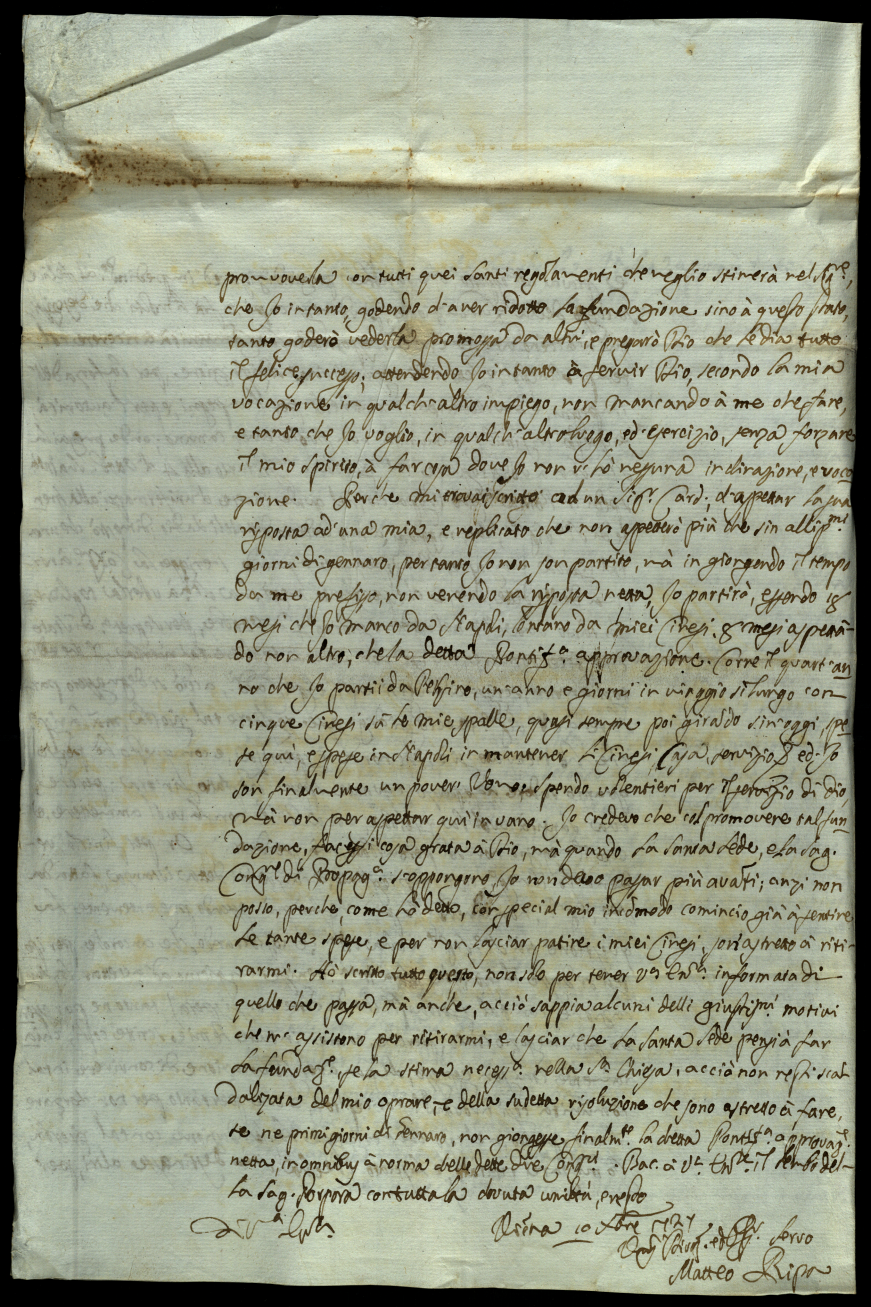 promoverla con tutti quei santi regolamenti che meglio stimerà nel Sig.re,
che Io intanto, godendo d'aver ridotto la fundazione sino à questo stato,
tanto goderò vederla promossa da altri, e pregarò Dio che le dia tutto
il felice successo; attendendo Io intanto à servir Dio, secondo la mia
vocazione in qualch'altro impiego, non mancando à me che fare,
e tanto che Io voglio, in qualch'altro luogo, ed esercizio, senza forzare
il mio spirito, à far cosa dove Io non v'hò nessuna inclinazione, e voca
zione. Perche mi trovai scritto ad un Sig.r Card., d'aspettar la sua
risposta ad una mia, e replicato che non aspetterò più che sin alli p.mi
giorni di gennaro, per tanto Io non son partito, mà in giongendo il tempo
da me prefisso, non venendo la risposta netta, Io partirò, essendo 18
mesi che Io manco da Napoli, lontano da miei Cinesi. 8 mesi aspettā-
do non altro, che la detta Pontif.a approvazione. Corre il quart'an
no che Io partii da Pekino, un'anno e giorni in viaggio sì lungo con
cinque Cinesi sù le mie spalle, quasi sempre poi girādo sin'oggi, spe
se quì, e spese in Napoli in mantener li Cinesi, Casa, servizio ed Io
son finalmente un pover'Uomo; spendo volentieri per il servizio di dio,
mà non per aspettar qui in vano. Io credevo che col promovere tal fun
dazione, facessi cosa grata à Dio, mà quando la Santa Sede, e la Sag.
Cong.e di Propag.a s'oppongono, Io non devo passar più avāti; anzi non
posso, perche, come hò detto, con special mio incōmodo comincio già à sentire
le tante spese, e per non lasciar patire i miei Cinesi, son'astretto à riti-
rarmi. Hò scritto tutto questo, non solo per tener V.a Em.a informata di
quello che passa, mà anche, acciò sappia alcuni delli giustiss.mi motivi
che m'assistono per ritirarmi, e lasciar che la Santa Sede pensi à far
la fundaz.e, se la stima necess.a nella S.a Chiesa, acciò non resti scan
dalizata del mio oprare, e della sudetta risoluzione che sono astretto à fare,
se ne primi giorni di Gennaro, non giongesse finalm.te la detta Pontif.a approvaz.e
netta, in omnibus à norma delle dette due Cong.ni. Bac. à V.a Em.za il lembo del-
la Sag. Porpora con tutta la dovuta umiltà, e resto
Di V.a Em.a Vienna 10 Xbre 1727
Um.o Divot.o ed Obb.o servo
Matteo Ripa